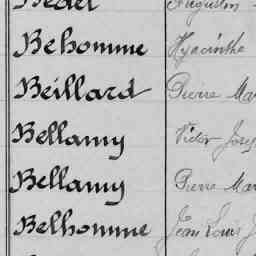 Bedel Augustin
Behomme Hyacinthe
Beillard Pierre Mar
Bellamy Victor Josep
Bellamy Pierre Mar
Belhomme Jean Louis J